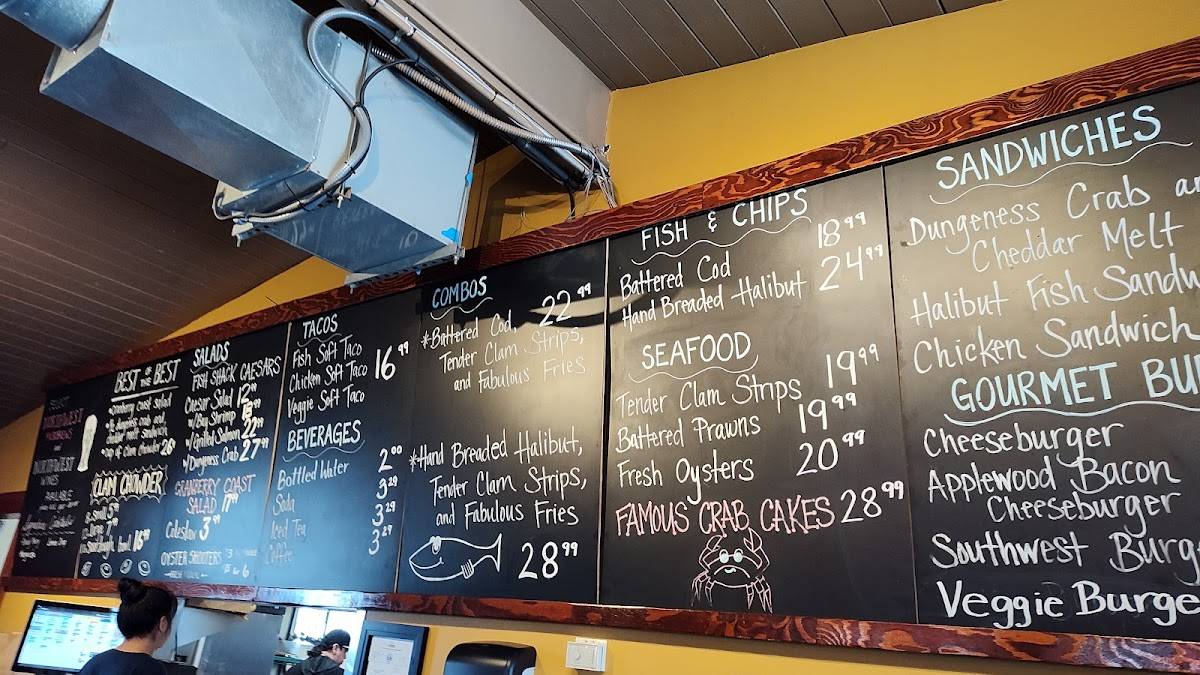 SELECT
NORTHWEST
NORTHWEST
WINES
AVAILABLE
BEST OF THE BEST
cranberry coast salad
cup of clam chowder 26
CLAM CHOWDER
SALADS
FISH SHACK CAESARS
Caesar Salad 12
w/Bay Shrimp
w/Grilled Salmon 22
w/Dungeness Crab 27
CRANBERRY COAST
SALAD
Coleslaw 3
OYSTER SHOOTERS
TACOS
Fish Soft Taco
Chicken Soft Taco 16.99
Veggie Soft Taco
BEVERAGES
Bottled Water 2.00
Soda 3.29
Iced Tea 3.29
Coffee 3.29
COMBOS
*Battered Cod, 22.99
Tender Clam Strips,
and Fabulous Fries
*Hand Breaded Halibut,
Tender Clam Strips,
and Fabulous Fries
28.99
FISH & CHIPS
Battered Cod 18.99
Hand Breaded Halibut 24.99
SEAFOOD
Tender Clam Strips 19.99
Battered Prawns 19.99
Fresh Oysters 20.99
FAMOUS CRAB CAKES 28.99
SANDWICHES
Dungeness Crab an
Cheddar Melt
Halibut Fish Sandw
Chicken Sandwich
GOURMET BU
Cheeseburger
Applewood Bacon
Cheeseburger
Southwest Burge
Veggie Burge